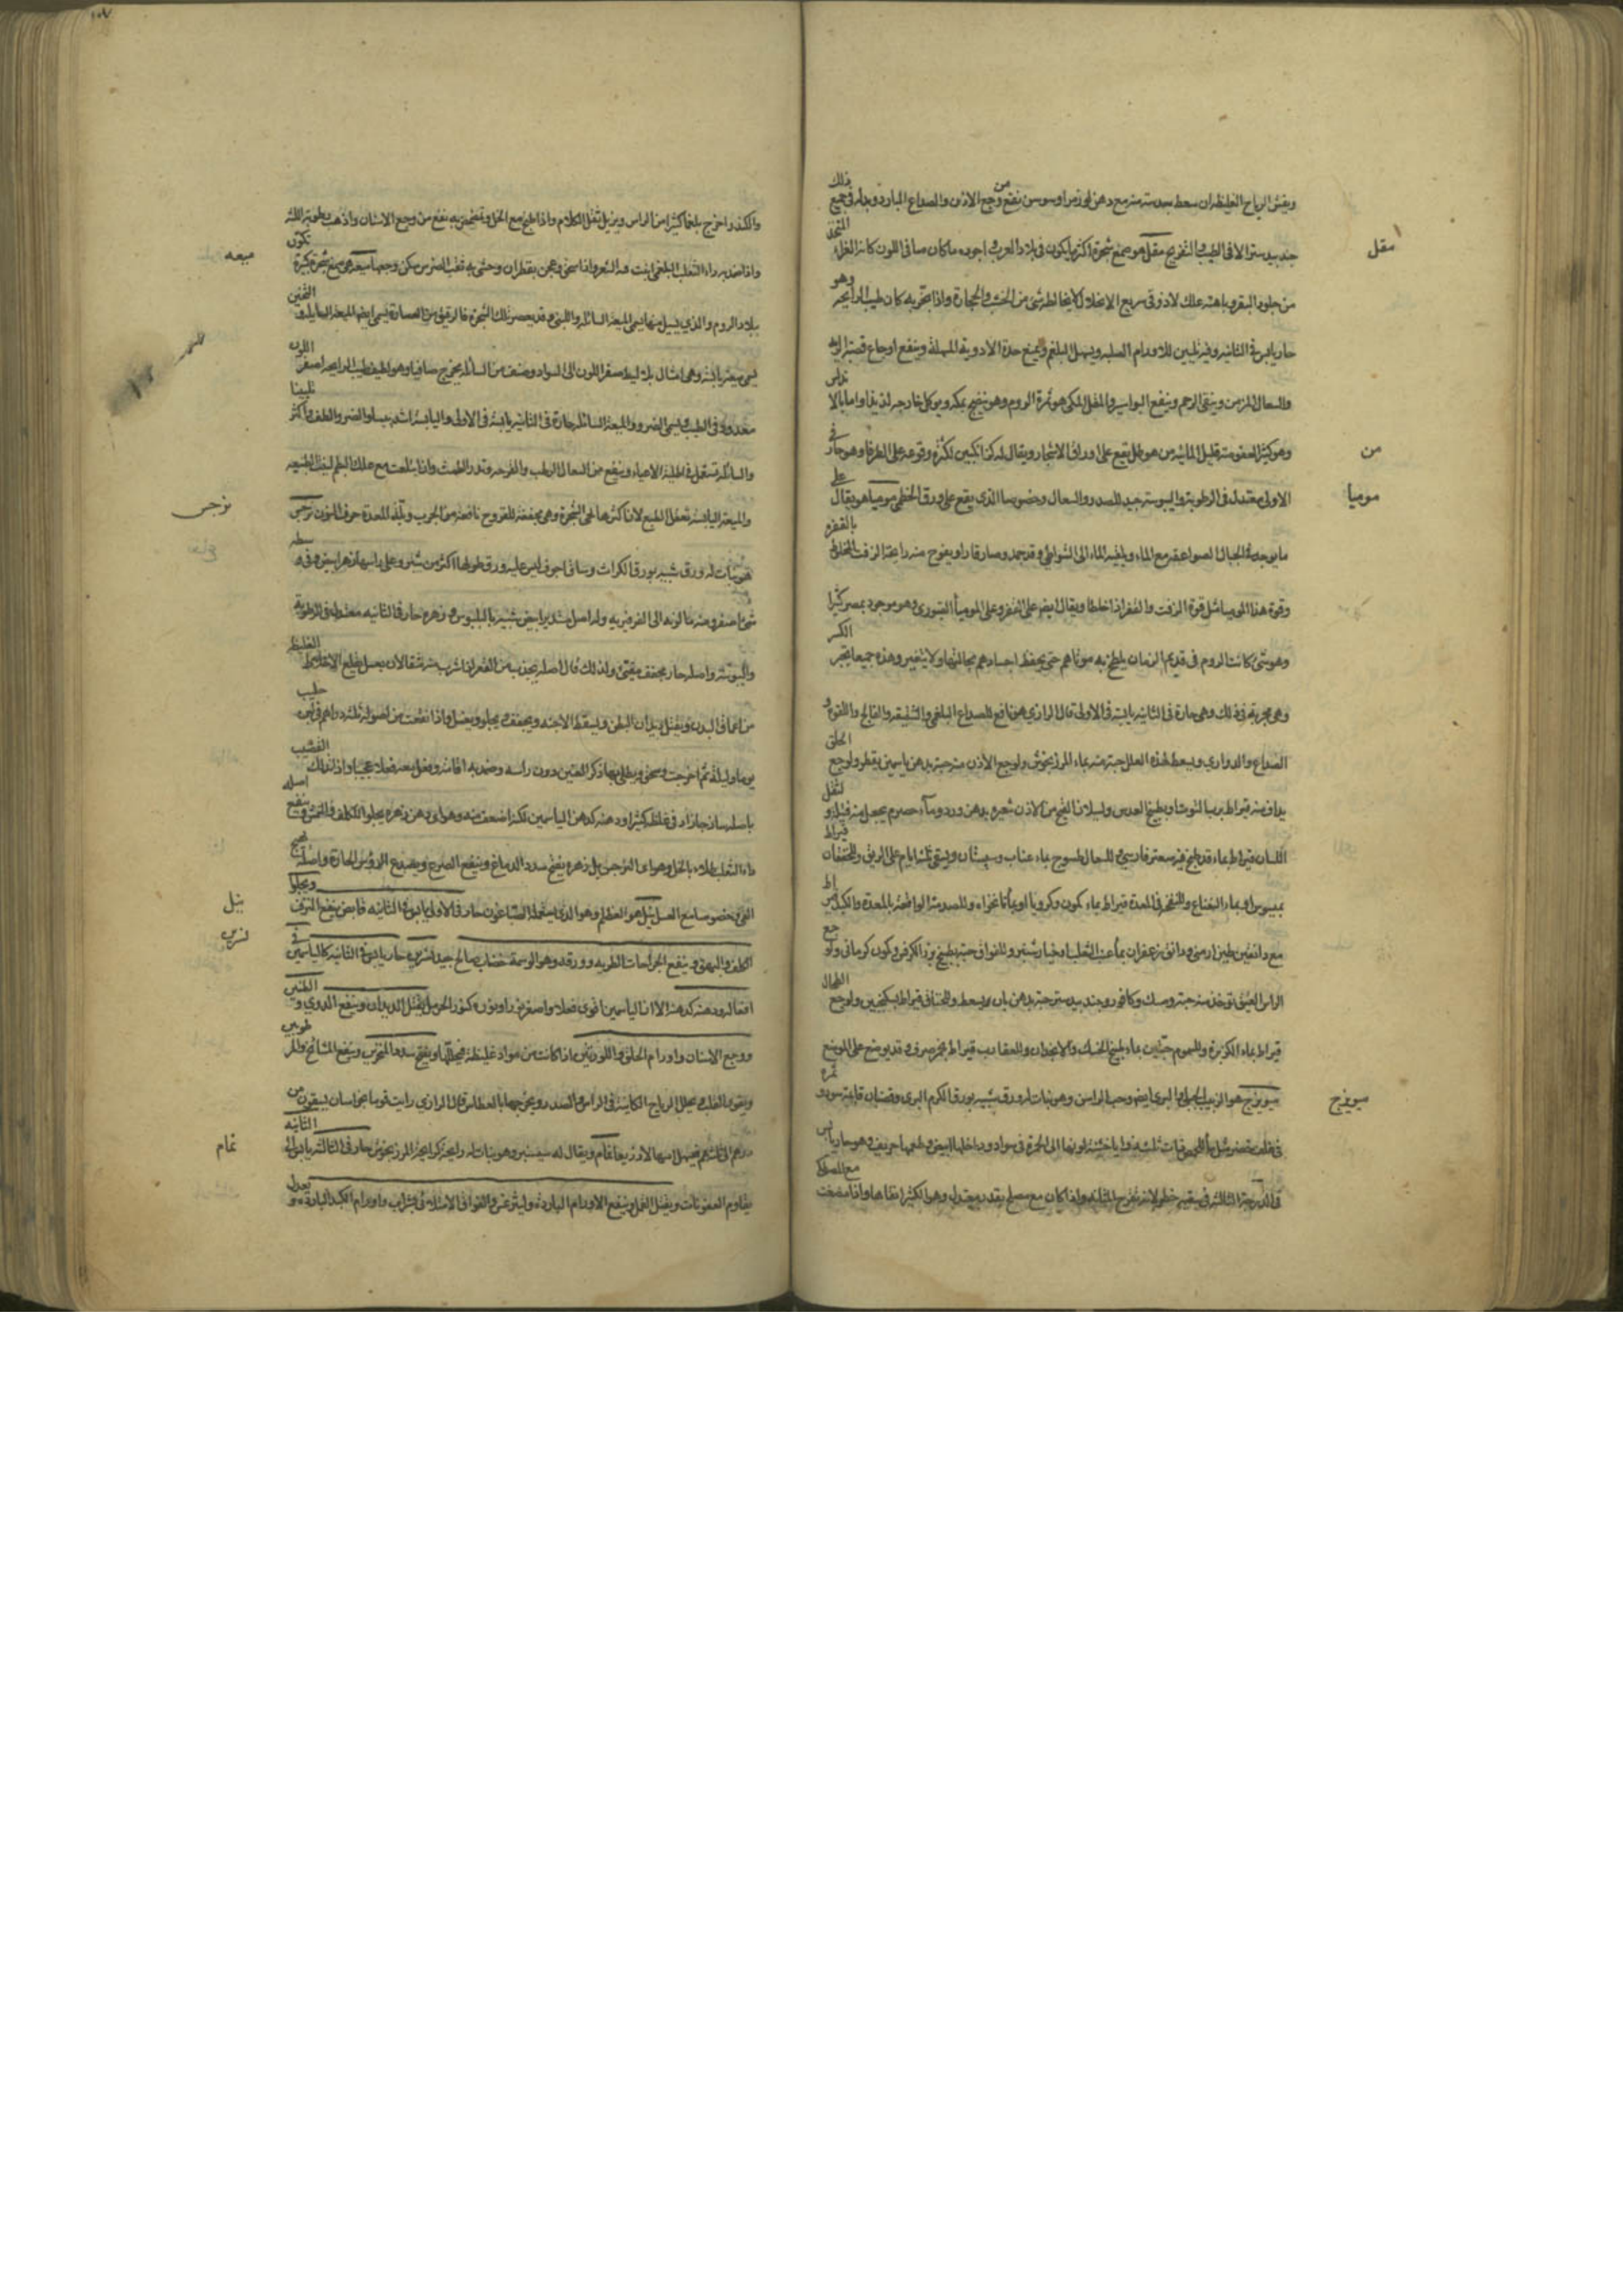 ويفش الرياح الغليظة ان سعط بحبة منه مع دهن او سوسن نفع من وجع الاذن والصداع البارد وبدله في جميع ذلك
مقل
جندبيدستر الا في الطيب والتفريح مقل هو صمغ شجرة اكثر ما يكون في بلاد العرب واجوده ما كان صافي اللون كانه الغراء المتخذ
من جلود البقر وباطنه علك لازوق سريع الانحلال لا يخالطه شئ من الخشب والحجارة واذا بخر به كان طيب الرايحة وهو
حار يابس في الثانيه وفيه تليين للاورام الصلبه ويسهل البلغم ويمنع حدة الادوية المسهلة وينفع اوجاع قصبة الريه
والسعال المزمن وينقي الرحم وينفع البواسير والمقل المكي هو ثمرة الدوم وهو ينضج بمكه ويوكل خارجه لذيذا واما بالاندلس
من
وهو كثير العفوصه قليل المائيه من هو طل يقع على اوراق الاشجار ويقال له كزانكبين لكثرة وقوعه على الطرفا وهو حار في
موميا
الاولى معتدل في الرطوبة واليبوسة جيد للصدر والسعال وخصوصا الذي يقع على ورق الخطمي موميا هو يقال على
ما يوجد في الجبال لصواعق مع الماء ويلقيه الماء الى الشواطئ وقد جمد وصار قارا ويفوح منه رايحة الزفت المخلوط بالقفر
وقوة هذا الموميا مثل قوة الزفت والقفر اذا خلطا ويقال ايضا على القفر وعلى الموميا القبوري وهو موجود بمصر كثيرا
وهو شئ كانت الروم في قديم الزمان يلطخ به موتاهم حتى يحفظ اجسادهم بحالتها ولا يتغير وهذه جميعا يجبر الكسر
وهي مجربة في ذلك وهي حارة في الثانيه يابسة في الاولى قال الرازي هو نافع للصداع البلغمي والشقيقه والفالج واللقوة و
الصداع والدوار ويسعط لهذه العلل حبة منه بماء المرزنجوش ولوجع الاذن منه حبة بدهن ياسمين يقطر ولوجع الحلق
يداف منه قيراط برب التوت او بطبيخ العدس ولسيلان القيح من الاذن شعيره بدهن ورد وماء حصرم يجعل منه فتيله و لثقل
اللسان قيراط بماء قد طبخ فيه سعتر فارسي وللسعال المسوح بماء عناب وسبستان ويسقى ثلثة ايام على الريق وللخفقان قيراط
بميسوس او بماء النعناع وللنفخ في المعدة قيراط بماء كمون وكرويا او بماء نانخواه وللصدمة الواقعة بالمعدة والكبد قيراط
مع دانقين طين ارمني ودانق زعفران بماء عنب الثعلب او خيار شنبر وللفواق حبة بطبيخ بزر الكرفس وكمون كرماني ولوجع
الراس العتيق توخذ منه حبة ومسك وكافور وجندبيدستر حبة بدهن بان يسعط وللخناق قيراط بسكنجبين ولوجع الطحال
قيراط بماء الكزبرة وللسموم حبتين بماء طبيخ الحسك والانجدان وللعقارب قيراط بخمر صرف وقد يوضع على الموضع
ميويزج
ميويزج هو الزبيب الجبلي والبري ايضا وحب الراس وهو نبات له ورق شبيه بورق الكرم البري وقضبان قايمة سود و ثمره
في غلف خضر مثل ما للحمص ذات ثلث زوايا خشنة لونها الى الحمرة في سواد وداخلها ابيض وطعمها حريف وهو حار يابس
في الدرجة الثالثه في سقيه خطر لانه تقرح المثانه واذا كان مع مصلح بقدر معتدل وهو الكثيرا نقاها واذا مضغت مع المصطكى
والكندر اخرج بلغما كثيرا من الراس ويزيل ثقل الكلام واذا طبخ مع الخل وتمضمض به نفع من وجع الاسنان واذهب رطوبة اللثه
ميعه
واذا ضمد به داء الثعلب البلغمي انبت فيه الشعر واذا سحق وعجن بقطران وحشي به ثقب الضرس سكن وجعها ميعه هي صمغ شجرة كبيرة تكون
ببلاد الروم والذي يسيل منها يسمى الميعة السائله واللبنى وقد يعصر تلك الشجرة فالرقيق من العصارة يسمى ايضا الميعة السايله والثخين
يسمى ميعة يابسة وهي امثال بلاليط صفر اللون الى السواد وصنف من السائلة يخرج صافيا وهو لطيف طيب الرايحه اصفر اللون
معدود في الطيب ويسمى الضرو والميعة السائله حارة في الثانيه يابسة في الاولى واليابسة اشد يبسا والضرو الطف واكثر تليينا
والسائله تستعمل في ادهنة الاعياء وينفع من السعال الرطب والقوحه وتدر الطمث واذا ابتلعت مع علك البطم لينت الطبيعه
نرجس
والميعة اليابسة تعقل الطبع لان اكثرها لحى الشجرة وهي مجففة للقروح نافعة من الجرب وتلذذ المعدة حرف النون نرجس
هو نبات له ورق شبيه بورق الكراث وساق اجوف ليس عليه ورق طولها اكثر من شبر وعلى راسها زهر ابيض وفي وسطه
شئ اصفر ومنه ما لونه الى الفرفيريه وله اصل مستدير ابيض شبيه بالبلبوس وزهره حار في الثانيه معتدل في الرطوبة
واليبوسة واصله حار مجفف مقيئ ولذلك قال اصله يجذب من القعر اذا شرب منه مثقالان بعسل يقلع الاخلاط الغليظه
من اعماق البدن ويقتل ديدان البطن ويسقط الاجنه ويجفف ويجلو ويغسل واذا نقعت من اصوله ثلثة دراهم في لبن حليب
يوما وليلة ثم اخرجت وسحق ويطلى بها ذكر العنين دون راسه وضمد به اقامه وفعل معه فعلا عجيبا واذا دلك القضيب
باصله ساذجا زاد في غلظه كثيرا ودهنه كدهن الياسمين لكنه اضعف منه وهو اي دهن زهره يجلو الكلف والنمش وينفع
داء الثعلب طلاء بالخل وهو اي النرجس بل زهره يفتح سدد الدماغ وينفع الصرع ويصدع الرؤس الحارة واصله يهيج
نيل
القئ وخصوصا مع العسل نيل هو العظلم وهو الذي يستعمله الصباغون حار في الاولى يابس في الثانيه قابض يمنع النزف ويجلو
نسرين
الكلف والبهق وينفع الجراحات الطريه وورقه وهو الوسمة خضاب صالح جيد نسرين حار يابس في الثانيه كالياسمين في
افعاله ودهنه كدهنه الا ان الياسمين اقوى فعلا واصغر نورا ونوره كنور الخرمل يقتل الديدان وينفع الدوي والطنين
ووجع الاسنان واورام الحلق واللوزتين اذا كانت من مواد غليظة فيحللها ويفتح سدد المنخرين وينفع المشائخ والمرطوبين
ويقوي القلب ويحلل الرياح الكاينة في الراس والصدر ويخرجها بالعطاس قال الرازي رايت قوما بخراسان يسقون من
نمام
درهم الى ثلثة دراهم فيسهل اسهالا ذريعا نمام ويقال له سيسنبر وهو نبات له رايحة كرايحة المرزنجوش حار في الثالثه يابس في الثانيه
يقاوم العفونات ويقتل القمل وينفع الاورام الباردة وليثرغس والفواق الامتلائي بشراب واورام الكبد الباردة و